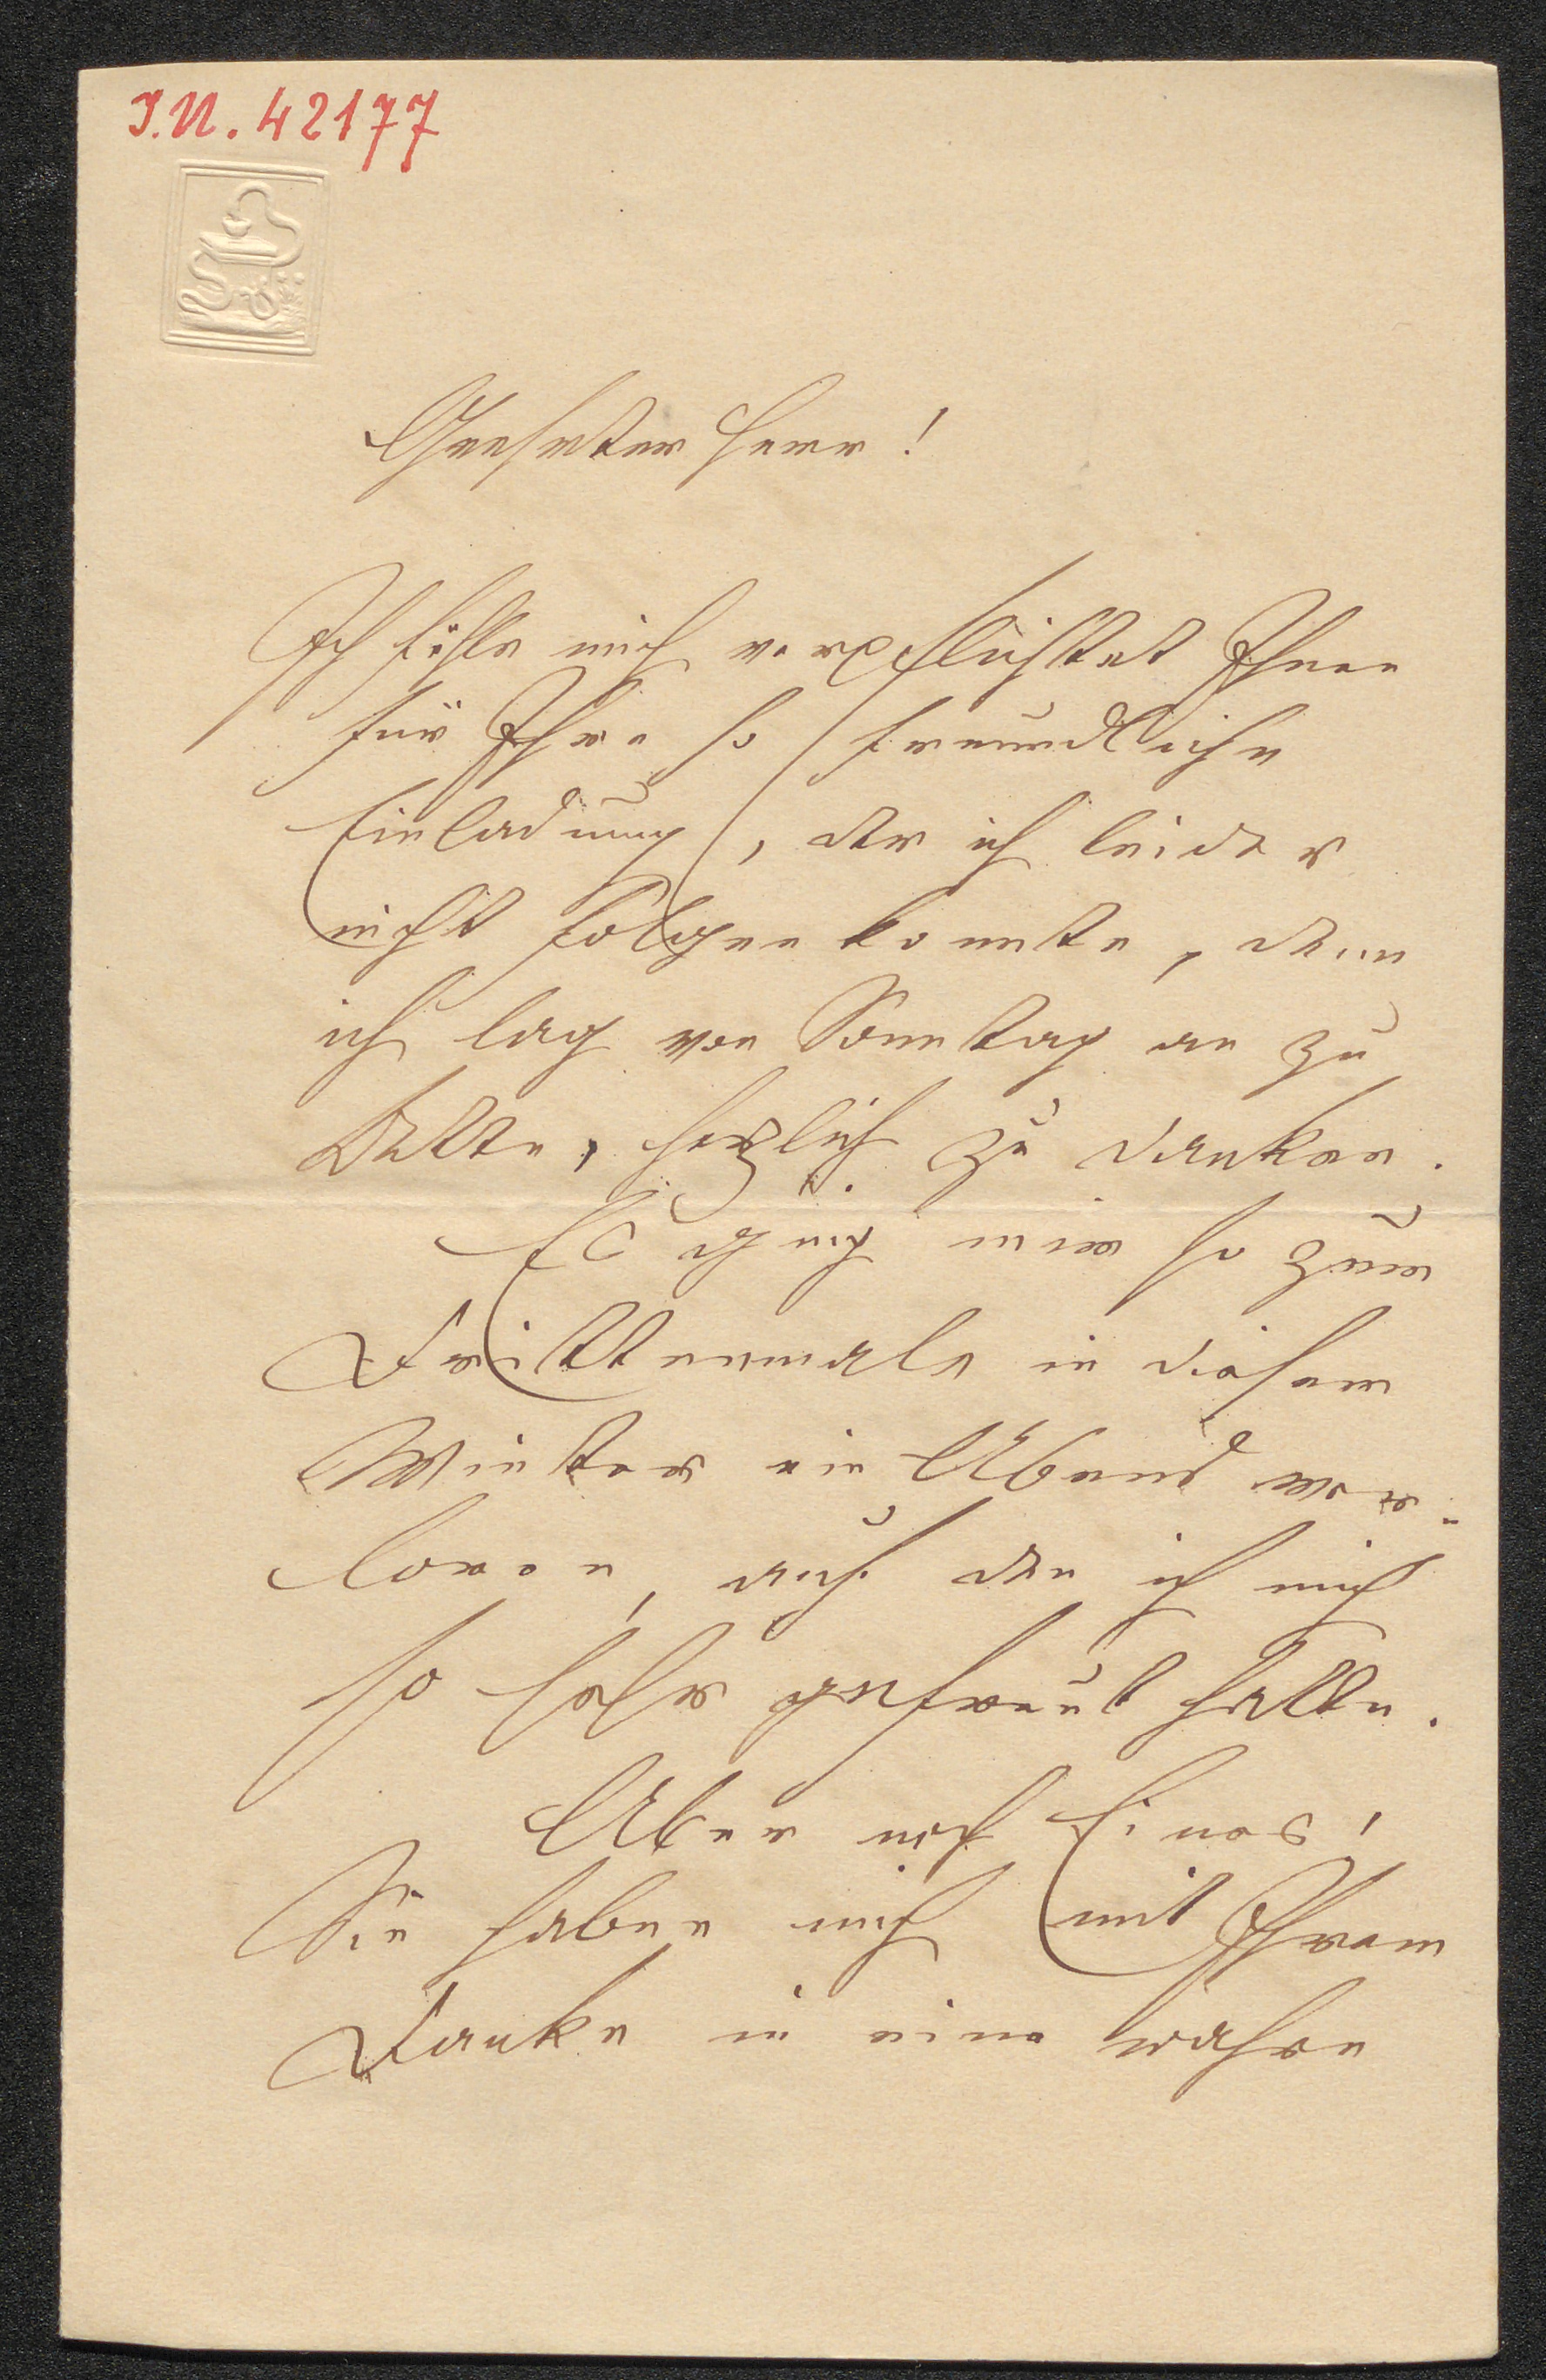 I.N. 42177
Geehrter Herr!
Ich fühle mich verpflichtet Ihnen
für Ihre so freundliche
Einladung, der ich leider
nicht folgen konnte, denn
ich lag von Sonntag an zu
Bette, herzlich zu danken.
Es ging mir so zum
Drittenmale in diesem
Winter ein Abend ver-
loren, auf den ich mich
so sehr gefreut hatte.
Aber noch Eines,
Sie haben mich mit Ihrem
Danke in eine wahre